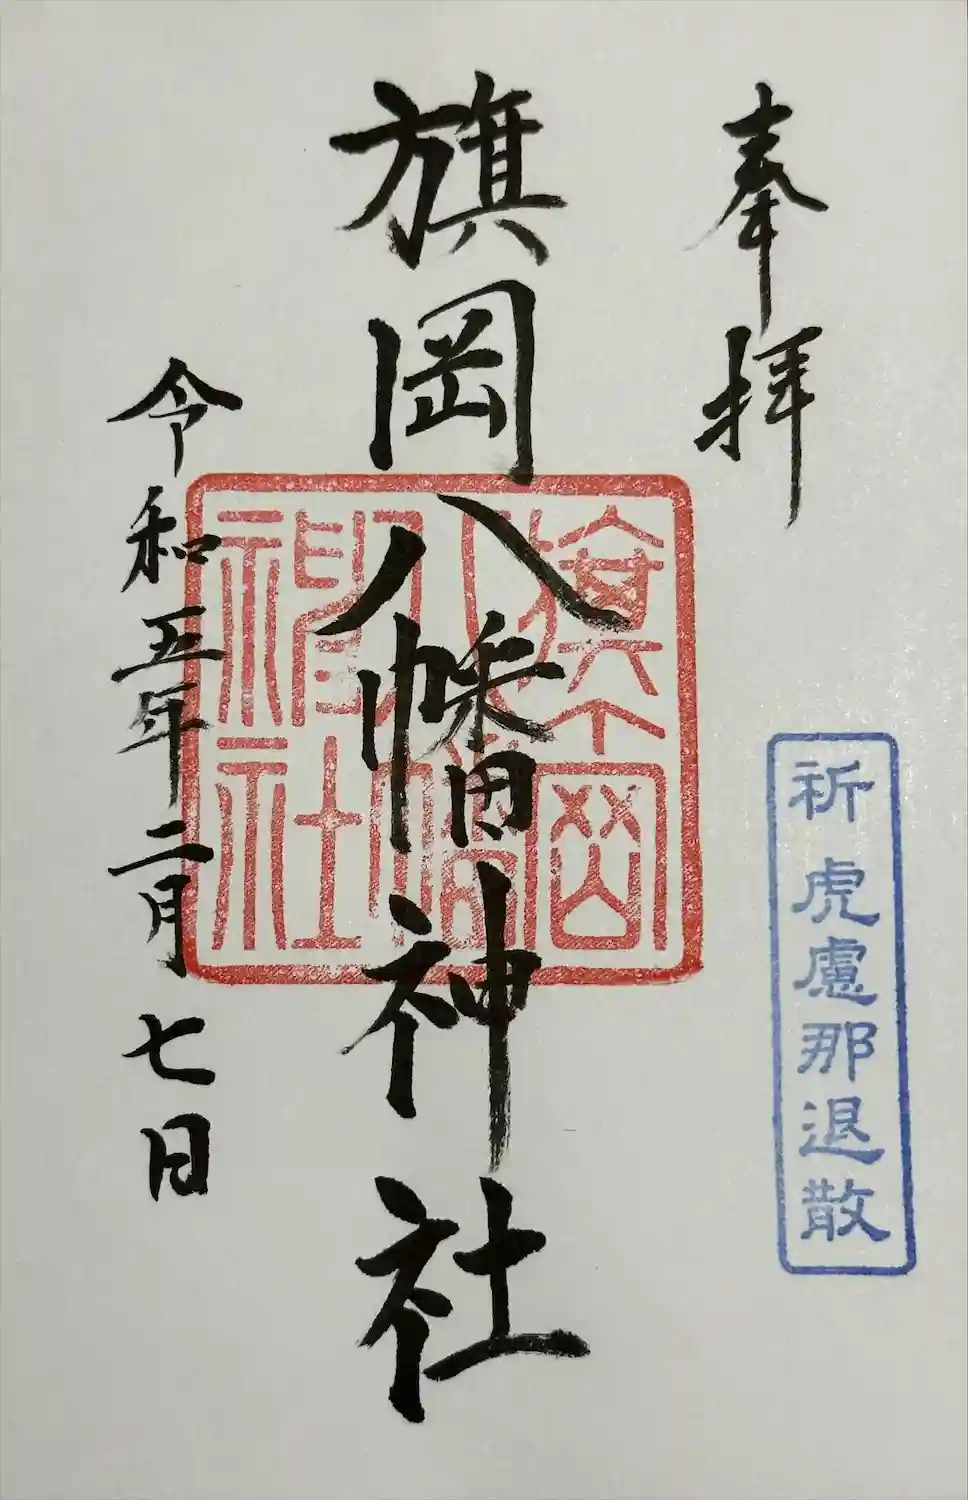 奉拝
祈 虎慮那退散
旗岡八幡神社
旗岡八幡神社
令和五年二月七日